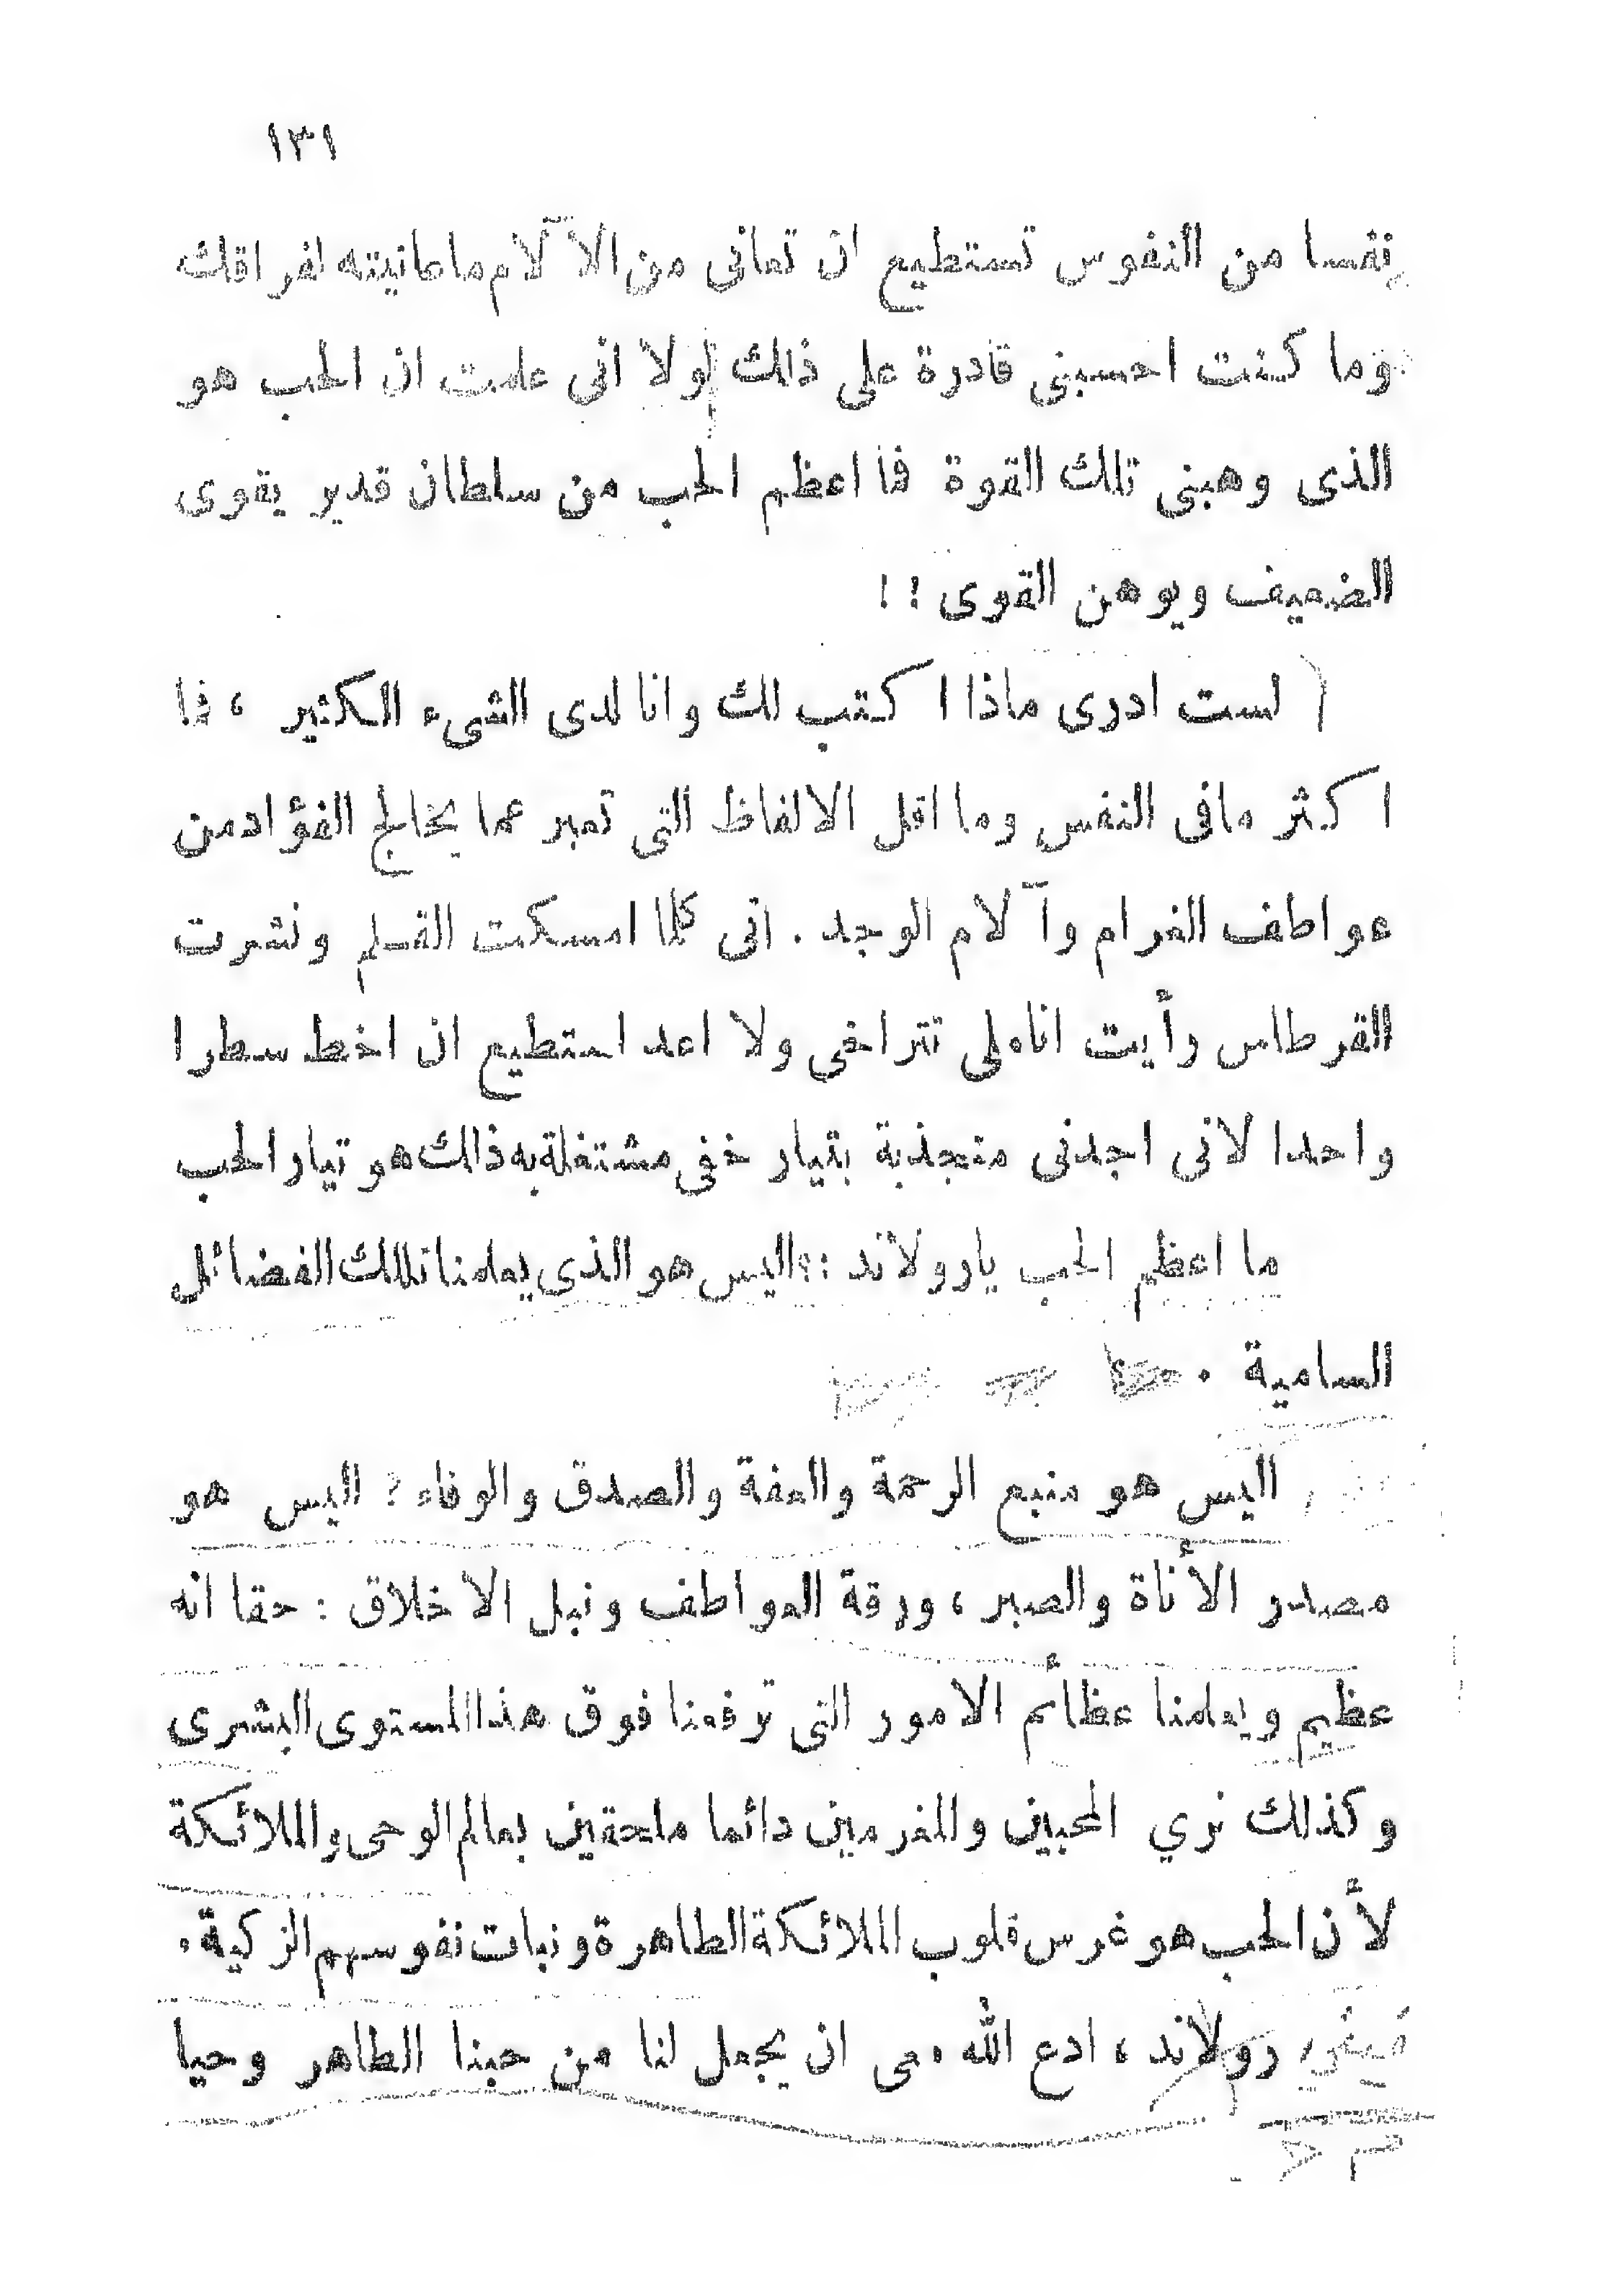 ١٣١
نفسا من النفوس تستطيع ان تعانى من الآلام ماعانيته لفراقك
وما كنت احسبنى قادرة على ذلك لولا انى علمت ان الحب هو
الذى وهبنى تلك القوة فما اعظم الحب من سلطان قدير يقوى
الضعيف ويوهن القوى ! !
( لست ادرى ماذا اكتب لك وانا لدى الشىء الكثير ، فما
اكثر مافى النفس وما اقل الالفاظ التى تعبر عما يخالج الفؤاد من
عواطف الغرام وآلام الوجد . انى كلما امسكت القلم ونشرت
القرطاس رأيت اناملى تتراخى ولا اعد استطيع ان اخط سطرا
واحدا لانى اجدنى منجذبة بتيار خفى مشتغلة به ذلك هو تيار الحب
ما اعظم الحب يارولاند : ؛ اليس هو الذى يعلمنا تلك الفضائل
السامية .
اليس هو منبع الرحمة والعفة والصدق والوفاء ؟ اليس هو
مصدر الأناة والصبر ، ورقة العواطف ونبل الاخلاق : حقا انه
عظيم ويعلمنا عظأم الامور التى ترفعنا فوق هذا المستوى البشرى
وكذلك نري المحبين والمغرمين دائما ملحقين بعالم الوحى والملائكة
لأن الحب هو غرس قلوب الملائكة الطاهرة ونبات نفوسهم الزكية .
رولاند ، ادع الله معى ان يجعل لنا من حبنا الطاهر وحيا